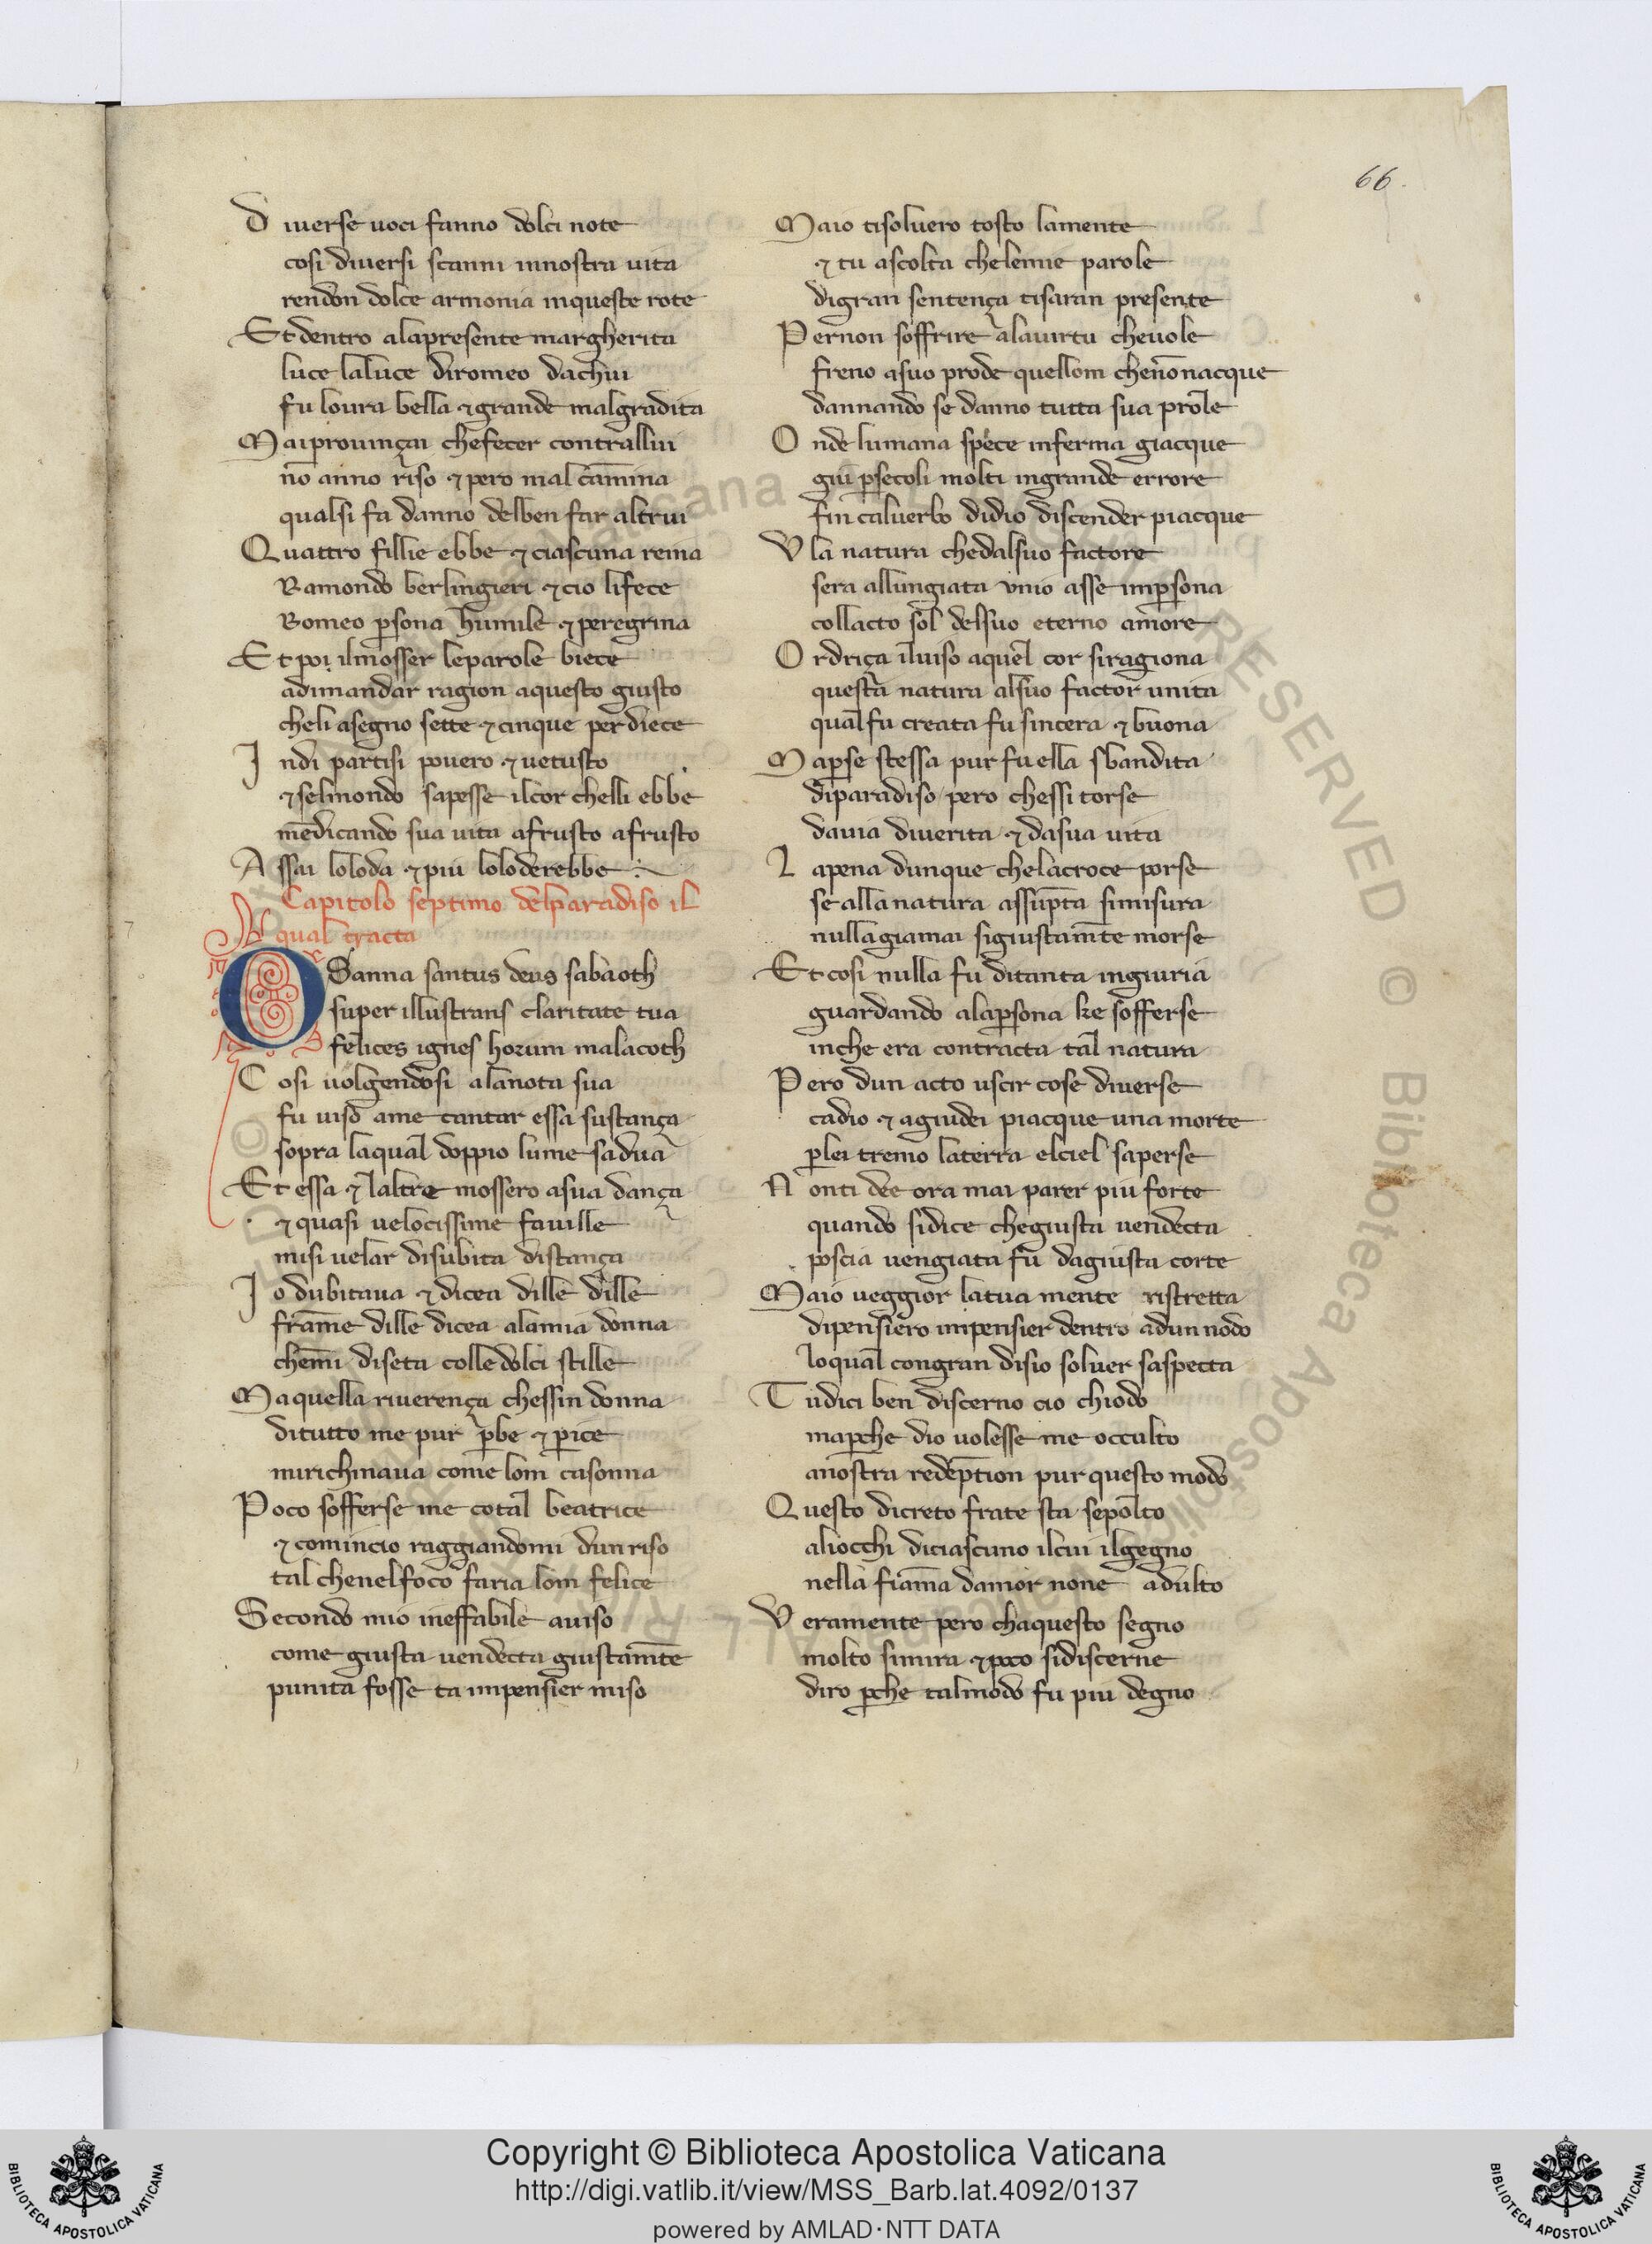 66.
Diuerse uoci fanno dolci note
cosi diuersi scanni innostra uita
rendon dolce armonia inqueste rote
Et dentro alapresente margherita
luce laluce diromeo dachui
fu loura bella ⁊ grande malgradita
Mai prouinçai chefecer contrallui
nō anno riso ⁊ pero mal cāmina
qualsi fa danno delben far altrui
Quattro fillie ebbe ⁊ ciascuna reina
Ramondo berlingieri ⁊ cio lifece
Romeo ꝑsona humile ⁊ peregrina
Et poi ilmosser leparole biece
adimandar ragion aquesto giusto
cheli asegno sette ⁊ cinque per diece
Indi partisi pouero ⁊ uetusto
⁊ selmondo sapesse ilcor chelli ebbe
mēdicando sua uita afrusto afrusto
Assai loloda ⁊ piu loloderebbe
Capitolo septimo delparadiso il
qual tracta
OSanna santus deus sabaoth
super illustrans claritate tua
felices ignes horum malacoth
Cosi uolgendosi alanota sua
fu uiso ame cantar essa sustança
sopra laqual doppio lume sadua
Et essa ⁊ laltre mossero asua dança
⁊ quasi uelocissime fauille
misi uelar disubita distança
Io dubitaua ⁊ dicea dille dille
frāme dille dicea alamia donna
chemi diseta colle dolci stille
Maquella riuerença chessin donna
ditutto me pur ꝑ be ⁊ ꝑ ice
mirichinaua come lom casonna
Poco sofferse me cotal beatrice
⁊ comincio raggiandomi dun riso
tal chenelfoco faria lom felice
Secondo mio ineffabile auiso
come giusta uendecta giustam̄te
punita fosse ta inpensier miso
Maio tisoluero tosto lamente
⁊ tu ascolta chelemie parole
digran sentença tisaran presente
Per non soffrire alauirtu cheuole
freno asuo prode quellom chenōnacque
dannando se danno tutta sua prole
Onde lumana spece inferma giacque
giu ꝑsecoli molti ingrande errore
fin caluerbo didio discender piacque
Vla natura chedalsuo factore
sera allungiata unio asse inꝑsona
collacto sol delsuo eterno amore
Ordriça iluiso aquel cor siragiona
questa natura alsuo factor unita
qual fu creata fu sincera ⁊ buona
Maꝑse stessa pur fu ella sbandita
diparadiso pero chessi torse
dauia diuerita ⁊ dasua uita
Lapena dunque chelacroce porse
se allanatura assūpta simisura
nullagiamai sigiustam̄te morse
Et cosi nulla fu ditanta ingiuria
guardando alaꝑsona ke sofferse
inche era contracta tal natura
Pero dun acto uscir cose diuerse
cadio ⁊ agiudei piacque una morte
ꝑ lei tremo laterra elciel saperse
Nonti dee ora mai parer piu forte
quando sidice chegiusta uendecta
poscia uengiata fu dagiusta corte
Maio ueggior latua mente ristretta
dipensiero inpensier dentro adun nodo
loqual congran disio soluer saspecta
Tudici ben discerno cio chiodo
maꝑche dio uolesse me occulto
anostra redēption pur questo modo
Questo dicreto frate sta sepolto
aliocchi diciascuno ilcui ilgegno
nella fiāma damor none adulto
Veramente pero chaquesto segno
molto simira ⁊ poco sidiscerne
diro ꝑche talmodo fu piu degno
Copyright © Biblioteca Apostolica Vaticana
http://digi.vatlib.it/view/MSS_Barb.lat.4092/0137
powered by AMLAD·NTT DATA
BIBLIOTECA APOSTOLICA VATICANA
BIBLIOTECA APOSTOLICA VATICANA